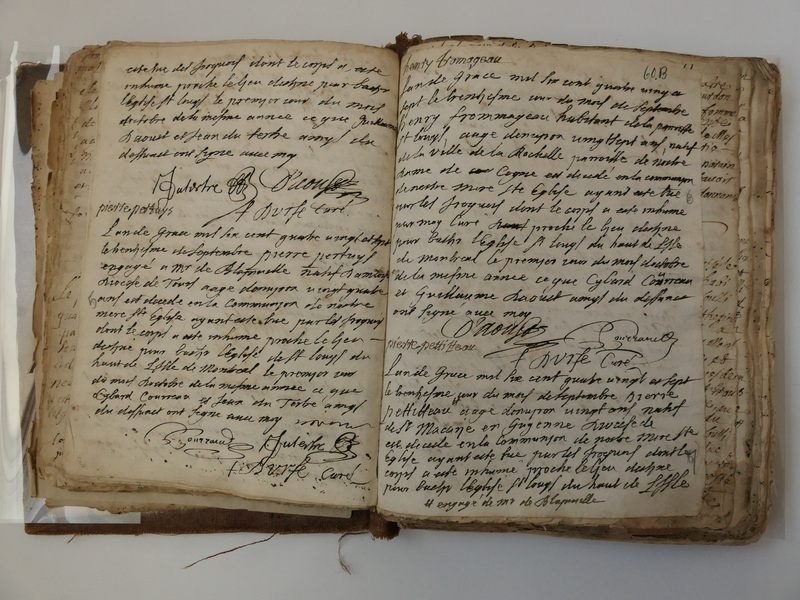 este tue des Iroquois dont le corps a este
inhume proche le lieu destine pour bastir
l'Eglise St louys le premier jour du mois
d'octobre de la mesme annee ce que Guillaume
Daoust et Jean du tertre amys du
deffunct ont signe avec moy
JDutertre Daoust
P Durfe Curé
pierre pertuys
Lan de Grace mil six cent quatre vingt et sept
le trentiesme de septembre pierre pertuys
engagé a Mr de natif
diocese de Tours aage d'environ vingt quatre
ans est decede en la Communion de nostre
mere Ste Eglise ayant este tue par les Iroquois
dont le corps a este inhume proche le lieu
destine pour bastir l'Eglise de St louys du
haut de l'Isle de Montreal le premier jour
du mois d'octobre de la mesme année ce que
Cybard Courreau et Jean du Tertre amys
du deffunct ont signe avec moy
JDutertre
P Durfe Curé
henry fromageau
60B
11
Lan de Grace mil six cent quatre vingt et
sept le trentiesme jour du mois de septembre
henry frommageau habitant de la parroisse
St louys aage denviron vingt sept ans natif
de la ville de la Rochelle parroisse de nostre
dame de Cogne est decedé en la communion
de nostre mere Ste Eglise ayant este tue
par les Iroquois dont le corps a este inhume
par moy Curé proche le lieu destine
pour bastir l'Eglise St louys du haut de l'Isle
de montreal le premier jour du mois d'octobre
de la mesme année ce que Cybard Courreau
et Guillaume Daoust amys du deffunct
ont signe avec moy
Daoust
P Durfe Curé
pierre pettitteau
Lan de Grace mil six cent quatre vingt et sept
le trentiesme jour du mois de septembre pierre
pettitteau aage denviron vingt ans natif
de St Macaire en Guyenne diocese de
est decede en la Communion de nostre mere Ste
Eglise ayant este tue par les Iroquois dont le
corps a este inhume proche le lieu destine
pour bastir l'Eglise St louys du haut de l'Isle
et engagé de Mr de